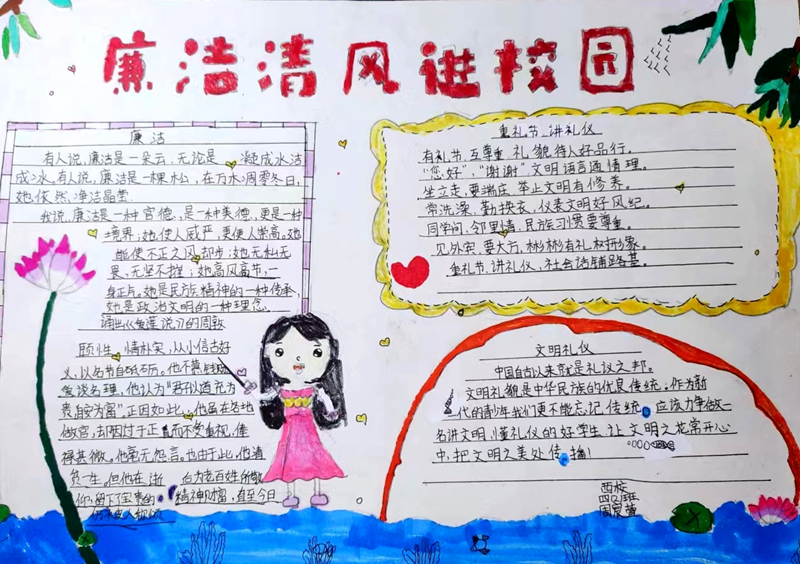 廉洁清风进校园
廉洁
有人说,廉洁是一朵云,无论是凝成水洁
成冰。有人说,廉洁是一棵松,在万木凋零冬日,
她依然净洁晶莹。
我说,廉洁是一种官德,是一种美德,更是一种
境界;她使人威严,更使人崇高。她
能使不正之风却步;她无私无
畏、无坚不摧;她高风高节,一
身正气,她是民族精神的一种传承,
她是政治文明的一种理念。
诵出《爱莲说》的周敦
颐性,情朴实,从小信古好
义,以名节自砥砺。他不
爱谈名理,他认为"君子以道充为
贵,身安为富",正因如此,他虽在各地
做官,却两过于正而不受重视,俸
禄甚微,他毫无怨言,也由于此,他清
贫一生,但他在
精神财富,直至今日
重礼节 讲礼仪
有礼节,互尊重,礼貌待人好品行。
"您好","谢谢"文明语言通情理。
坐立走,要端庄,举止文明有修养。
常洗澡,勤换衣,仪表文明好风纪。
同学间,邻里情,民族习惯要尊重。
见外宾,要大方,彬彬有礼树形象。
重礼节,讲礼仪,社会活铺路基。
文明礼仪
中国自古以来就是礼仪之邦。
文明礼貌是中华民族的优良传统,作为新
一代的青少年我们更不能忘记传统,应该力争做一
名讲文明,懂礼仪的好学生,让文明之花常开心
中,把文明之美处传播!
西校
四(2)班